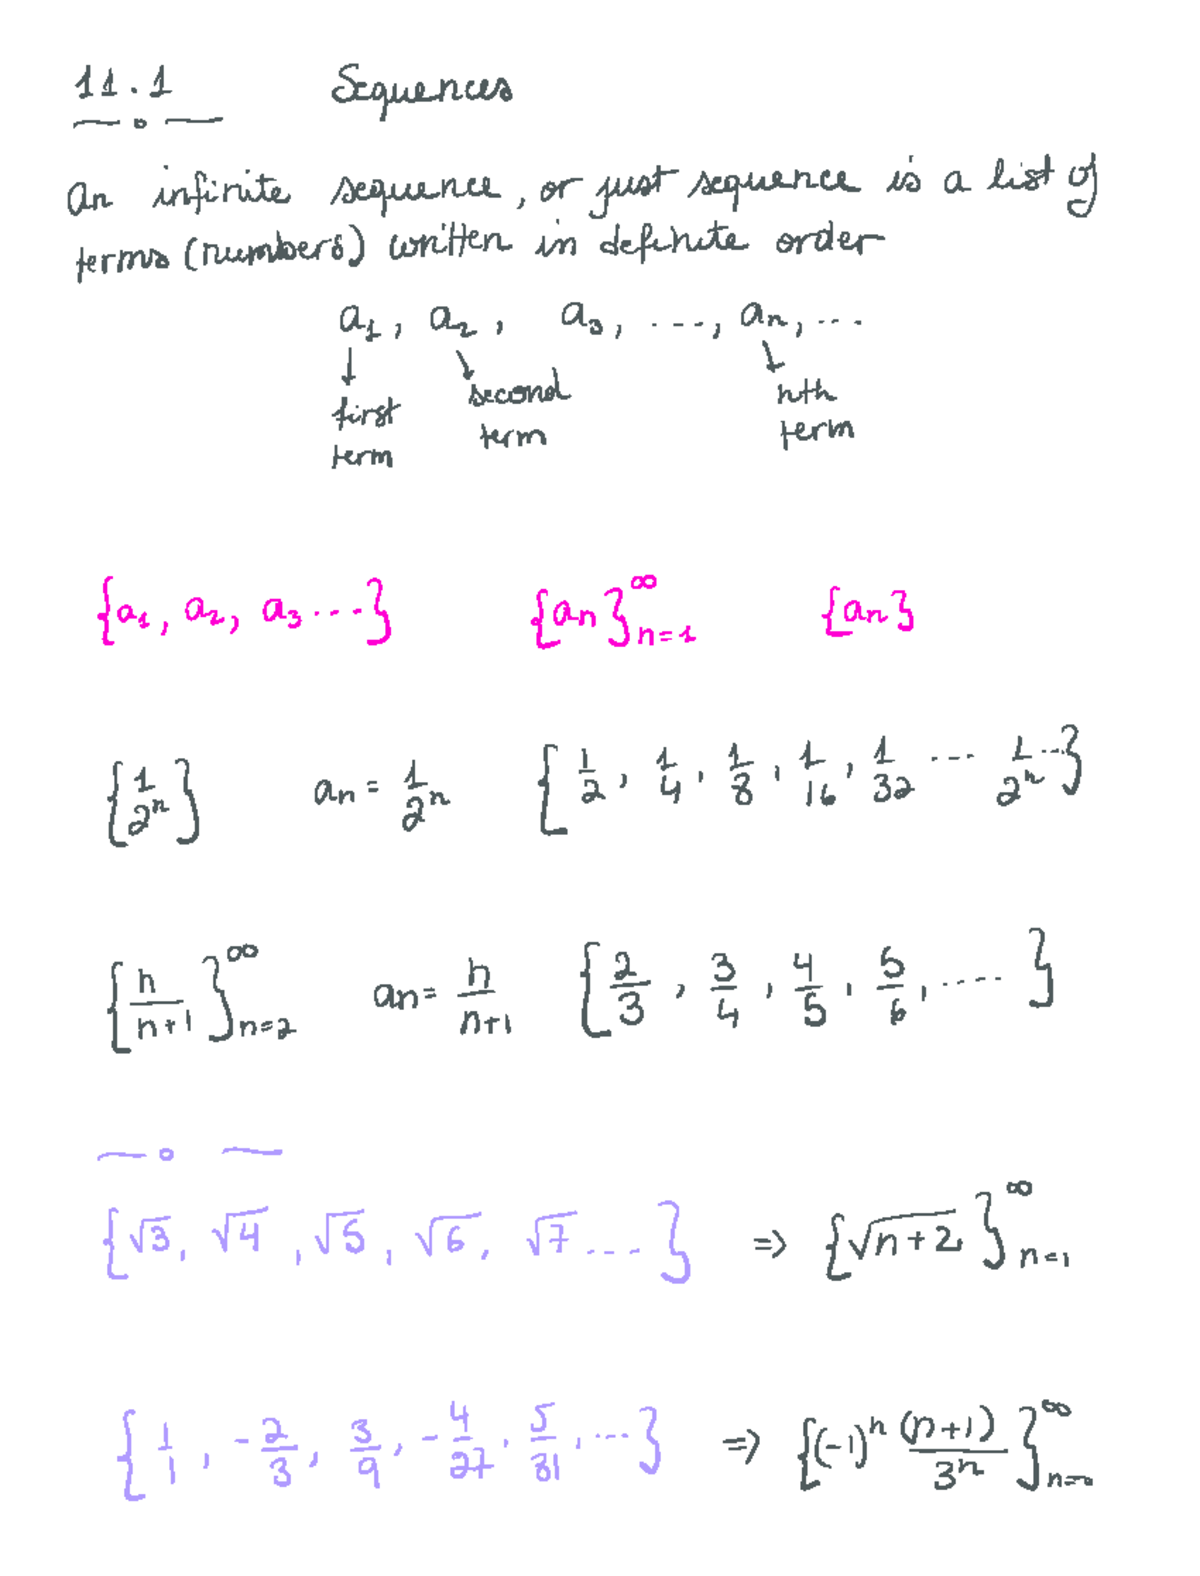 11.1 Sequences
An infinite sequence, or just sequence is a list of
terms (numbers) written in definite order
a₁, a₂, a₃, ..., aₙ, ...
first term second term nth term
{a₁, a₂, a₃ ...} {aₙ}ₙ₌₁^∞ {aₙ}
{1/2ⁿ} aₙ = 1/2ⁿ {1/2, 1/4, 1/8, 1/16, 1/32 ... 1/2ⁿ ...}
{n/(n+1)}ₙ₌₂^∞ aₙ = n/(n+1) {2/3, 3/4, 4/5, 5/6, ....}
{√3, √4, √5, √6, √7 ....} ⇒ {√(n+2)}ₙ₌₁^∞
{1/1, -2/3, 3/9, -4/27, 5/81, ...} ⇒ {(-1)ⁿ (n+1)/3ⁿ}ₙ₌₀^∞